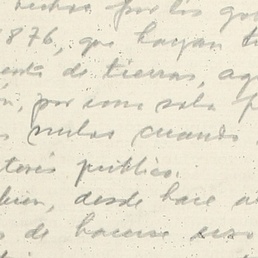 hechos por los go
1876, que hayan t
enta de tierras, aq
n, por una sola f
s nulas cuando
terés público.
bien, desde hace a
s de hacerse uso